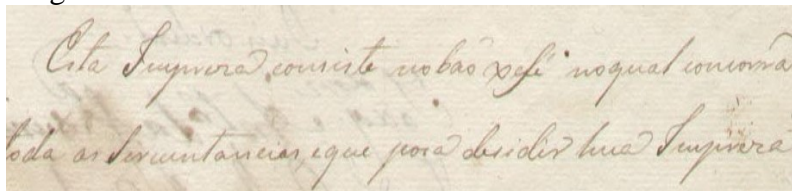 Esta Impreza consiste no baõ xefe noqual concorrã
toda as sercuntancias, eque posa desidir hua Impreza